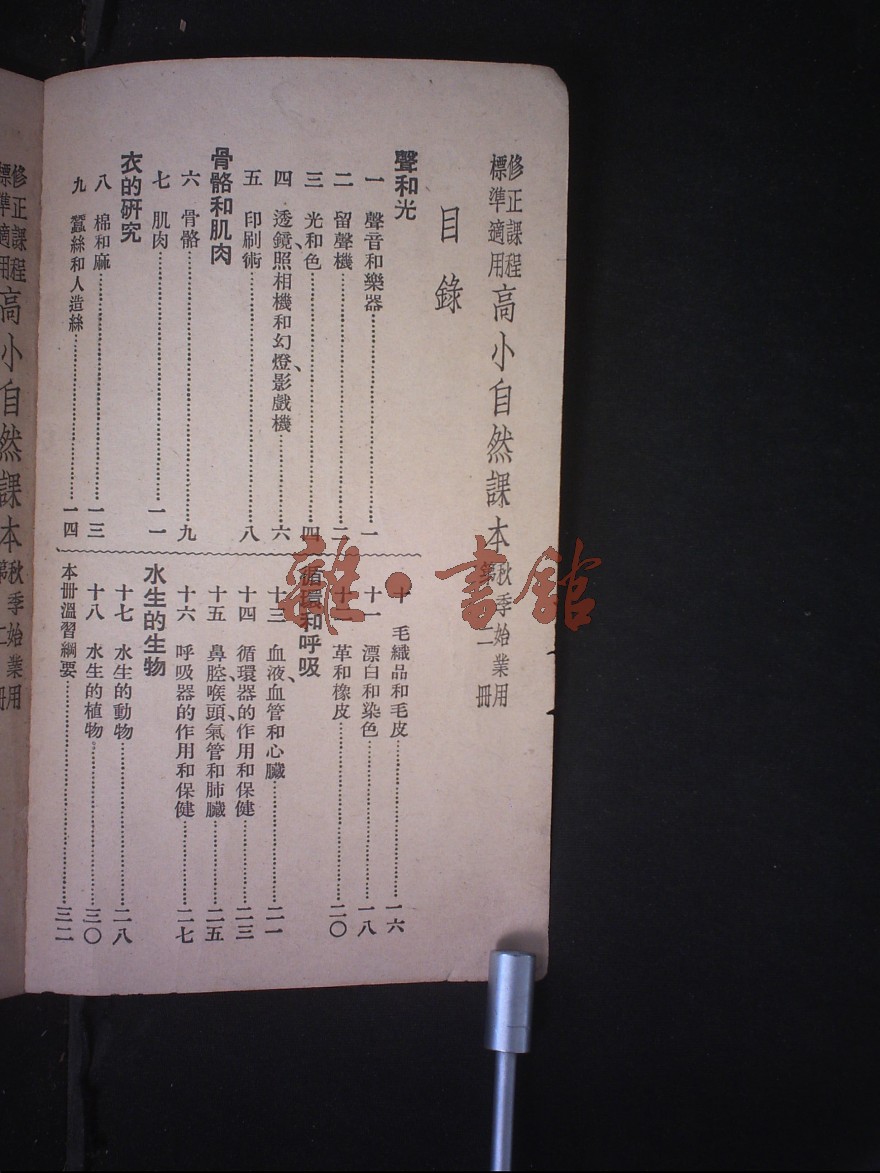 修正課程標準適用 高小自然課本 秋季始業用 第二冊
目錄
聲和光
一 聲音和樂器……一
二 留聲機……二
三 光和色……四
四 透鏡、照相機和幻燈、影戲機……六
五 印刷術……八
骨骼和肌肉
六 骨骼……九
七 肌肉……一一
衣的研究
八 棉和麻……一三
九 蠶絲和人造絲……一四
十 毛織品和毛皮……一六
十一 漂白和染色……一八
十二 革和橡皮……二〇
循環和呼吸
十三 血液、血管和心臟……二一
十四 循環器的作用和保健……二三
十五 鼻腔、喉頭、氣管和肺臟……二五
十六 呼吸器的作用和保健……二七
水生的生物
十七 水生的動物……二八
十八 水生的植物……三〇
本冊溫習綱要……三二
修正課程標準適用 高小自然課本 秋季始業用
雜·書館